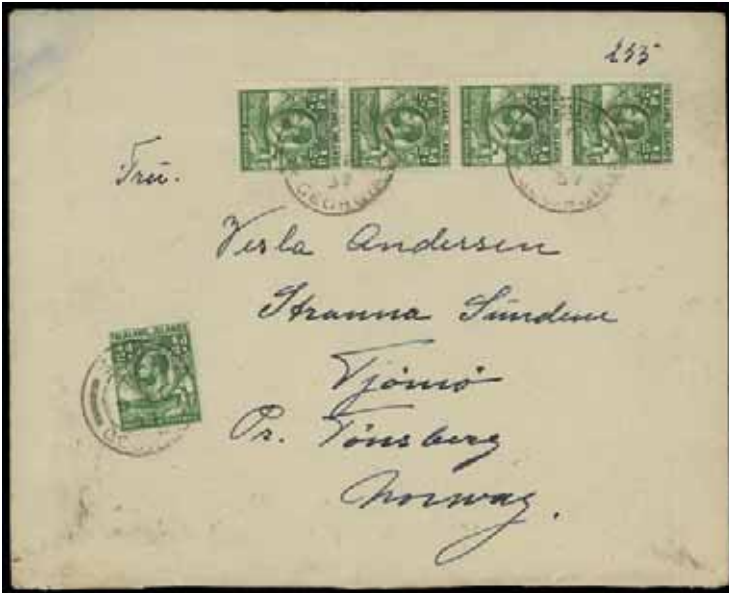 235
Fru.
Vesla Andersen
Stranna Sundene
Tjömö
Pr. Tönsberg
Norway.
FALKLAND ISLANDS
GEORGIA
37